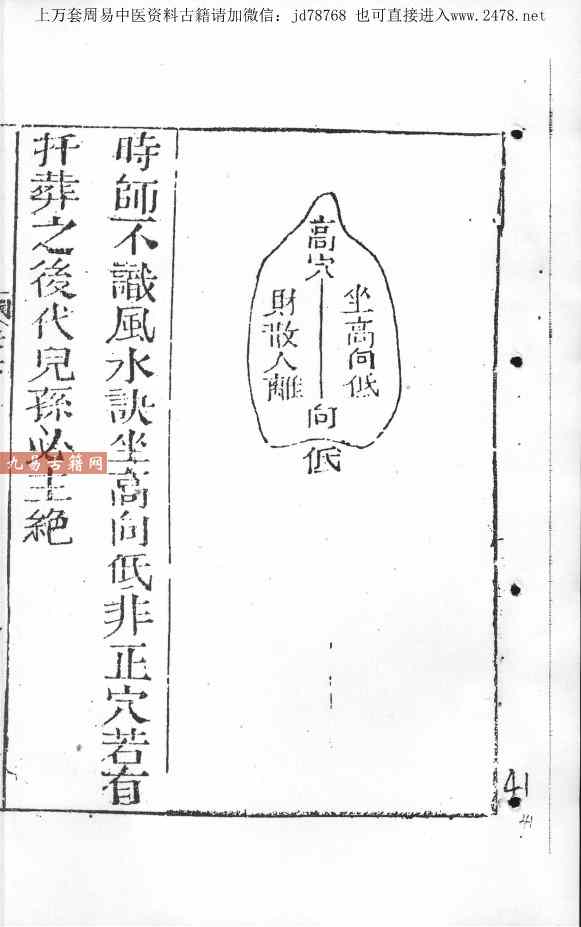 上万套周易中医资料古籍请加微信：jd78768 也可直接进入www.2478.net
高穴
坐高向低
財散人離
向低
時師不識風水訣坐高向低非正穴若有
扦葬之後代兒孫必主絶
九易古籍网
41
41